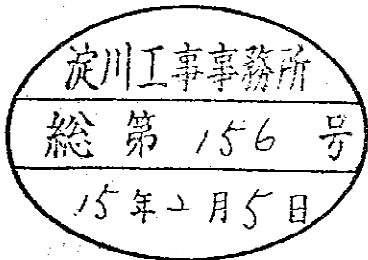 淀川工事事務所
総第156号
15年2月5日